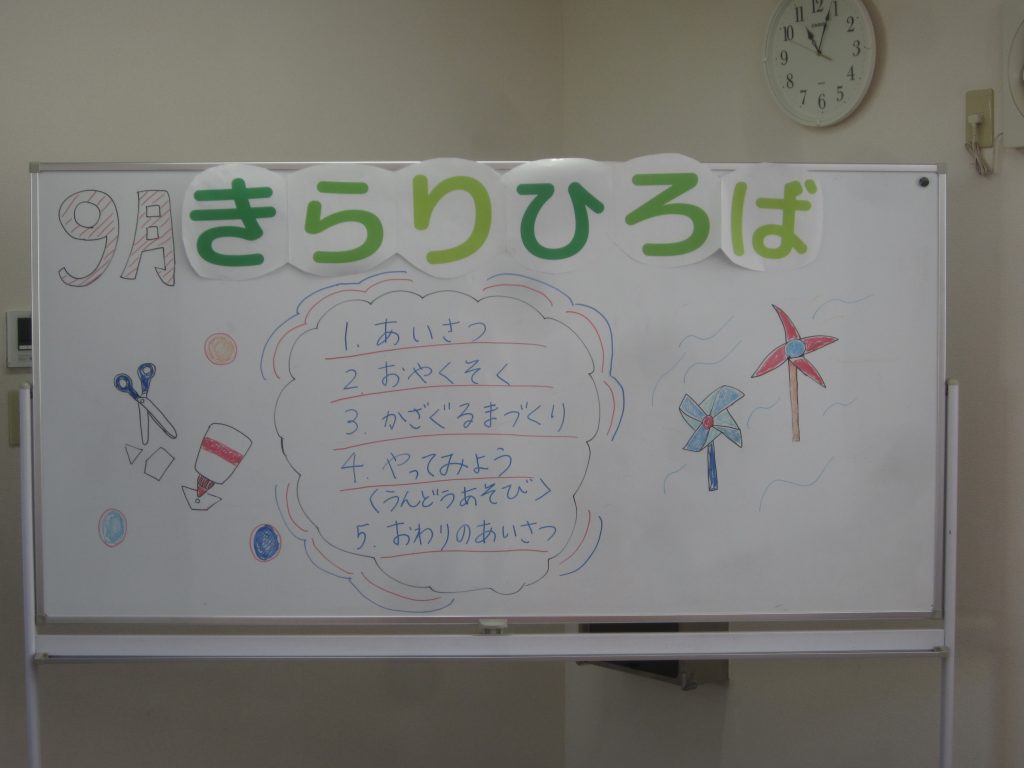 9月 きらりひろば
1. あいさつ
2 おやくそく
3. かざぐるまづくり
4. やってみよう
〈うんどうあそび〉
5. おわりのあいさつ
12
1
2
3
4
5
6
7
8
9
10
11